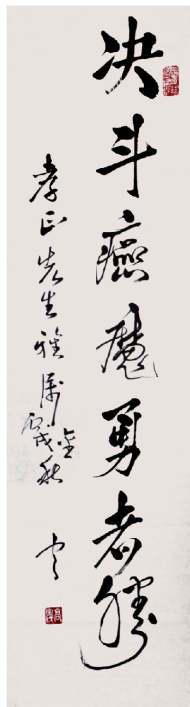 决斗癌魔勇者胜
孝正先生雅属
丙戌金秋